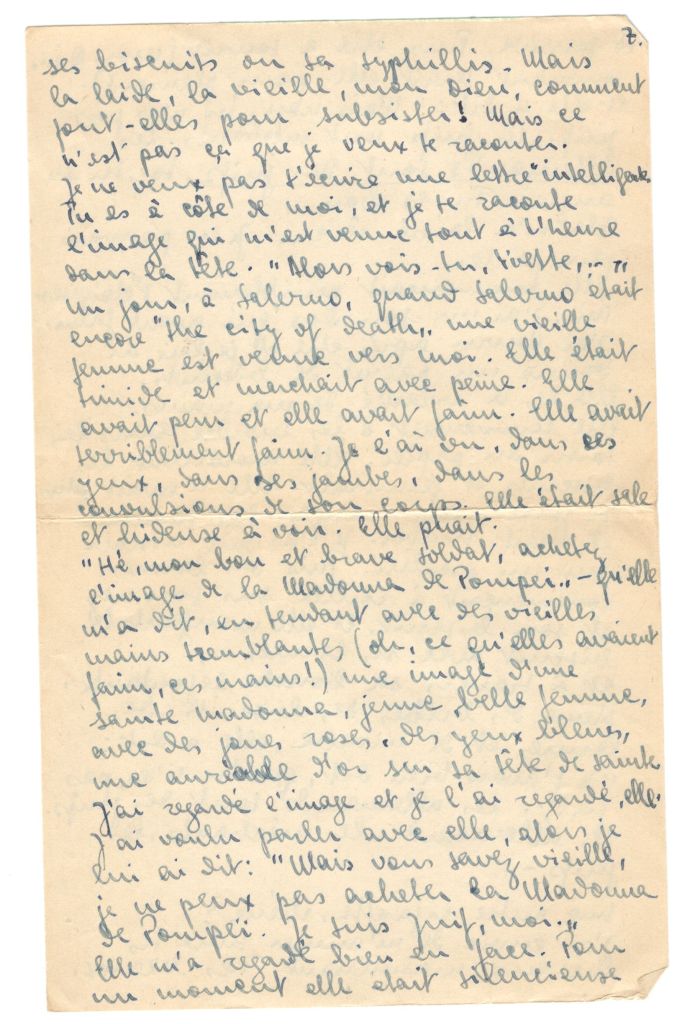 7.
ses biscuits ou sa syphillis. Mais
la laide, la vieille, mon Dieu, comment
font-elles pour subsister! Mais ce
n'est pas ça que je veux te raconter.
Je ne veux pas t'écrire une lettre "intelligente
Tu es à côté de moi, et je te raconte
l'image qui m'est venue tout à l'heure
dans la tête. "Alors vois-tu, Yvette,..."
un jour, à Salerno, quand Salerno était
encore "the city of death„ une vieille
femme est venue vers moi. Elle était
timide et marchait avec peine. Elle
avait peur et elle avait faim. Elle avait
terriblement faim. Je l'ai vu, dans ses
yeux, dans ses jambes, dans les
convulsions de son corps. Elle était sale
et hideuse à voir. Elle puait.
"Hé, mon bon et brave soldat, achetez
l'image de la Madonna de Pompei.„ - qu'elle
m'a dit, en tendant avec des vieilles
mains tremblantes (oh, ce qu'elles avaient
faim, ces mains!) une image d'une
sainte madonna, jeune, belle femme,
avec des joues roses, des yeux bleues,
une auréole d'or sur sa tête de sainte.
J'ai regardé l'image et je l'ai regardé, elle.
J'ai voulu parler avec elle, alors je
lui ai dit: "Mais vous savez vieille,
je ne peux pas acheter la Madonna
de Pompéi. Je suis Juif, moi.„
Elle m'a regardé bien en face. Pour
un moment elle était silencieuse